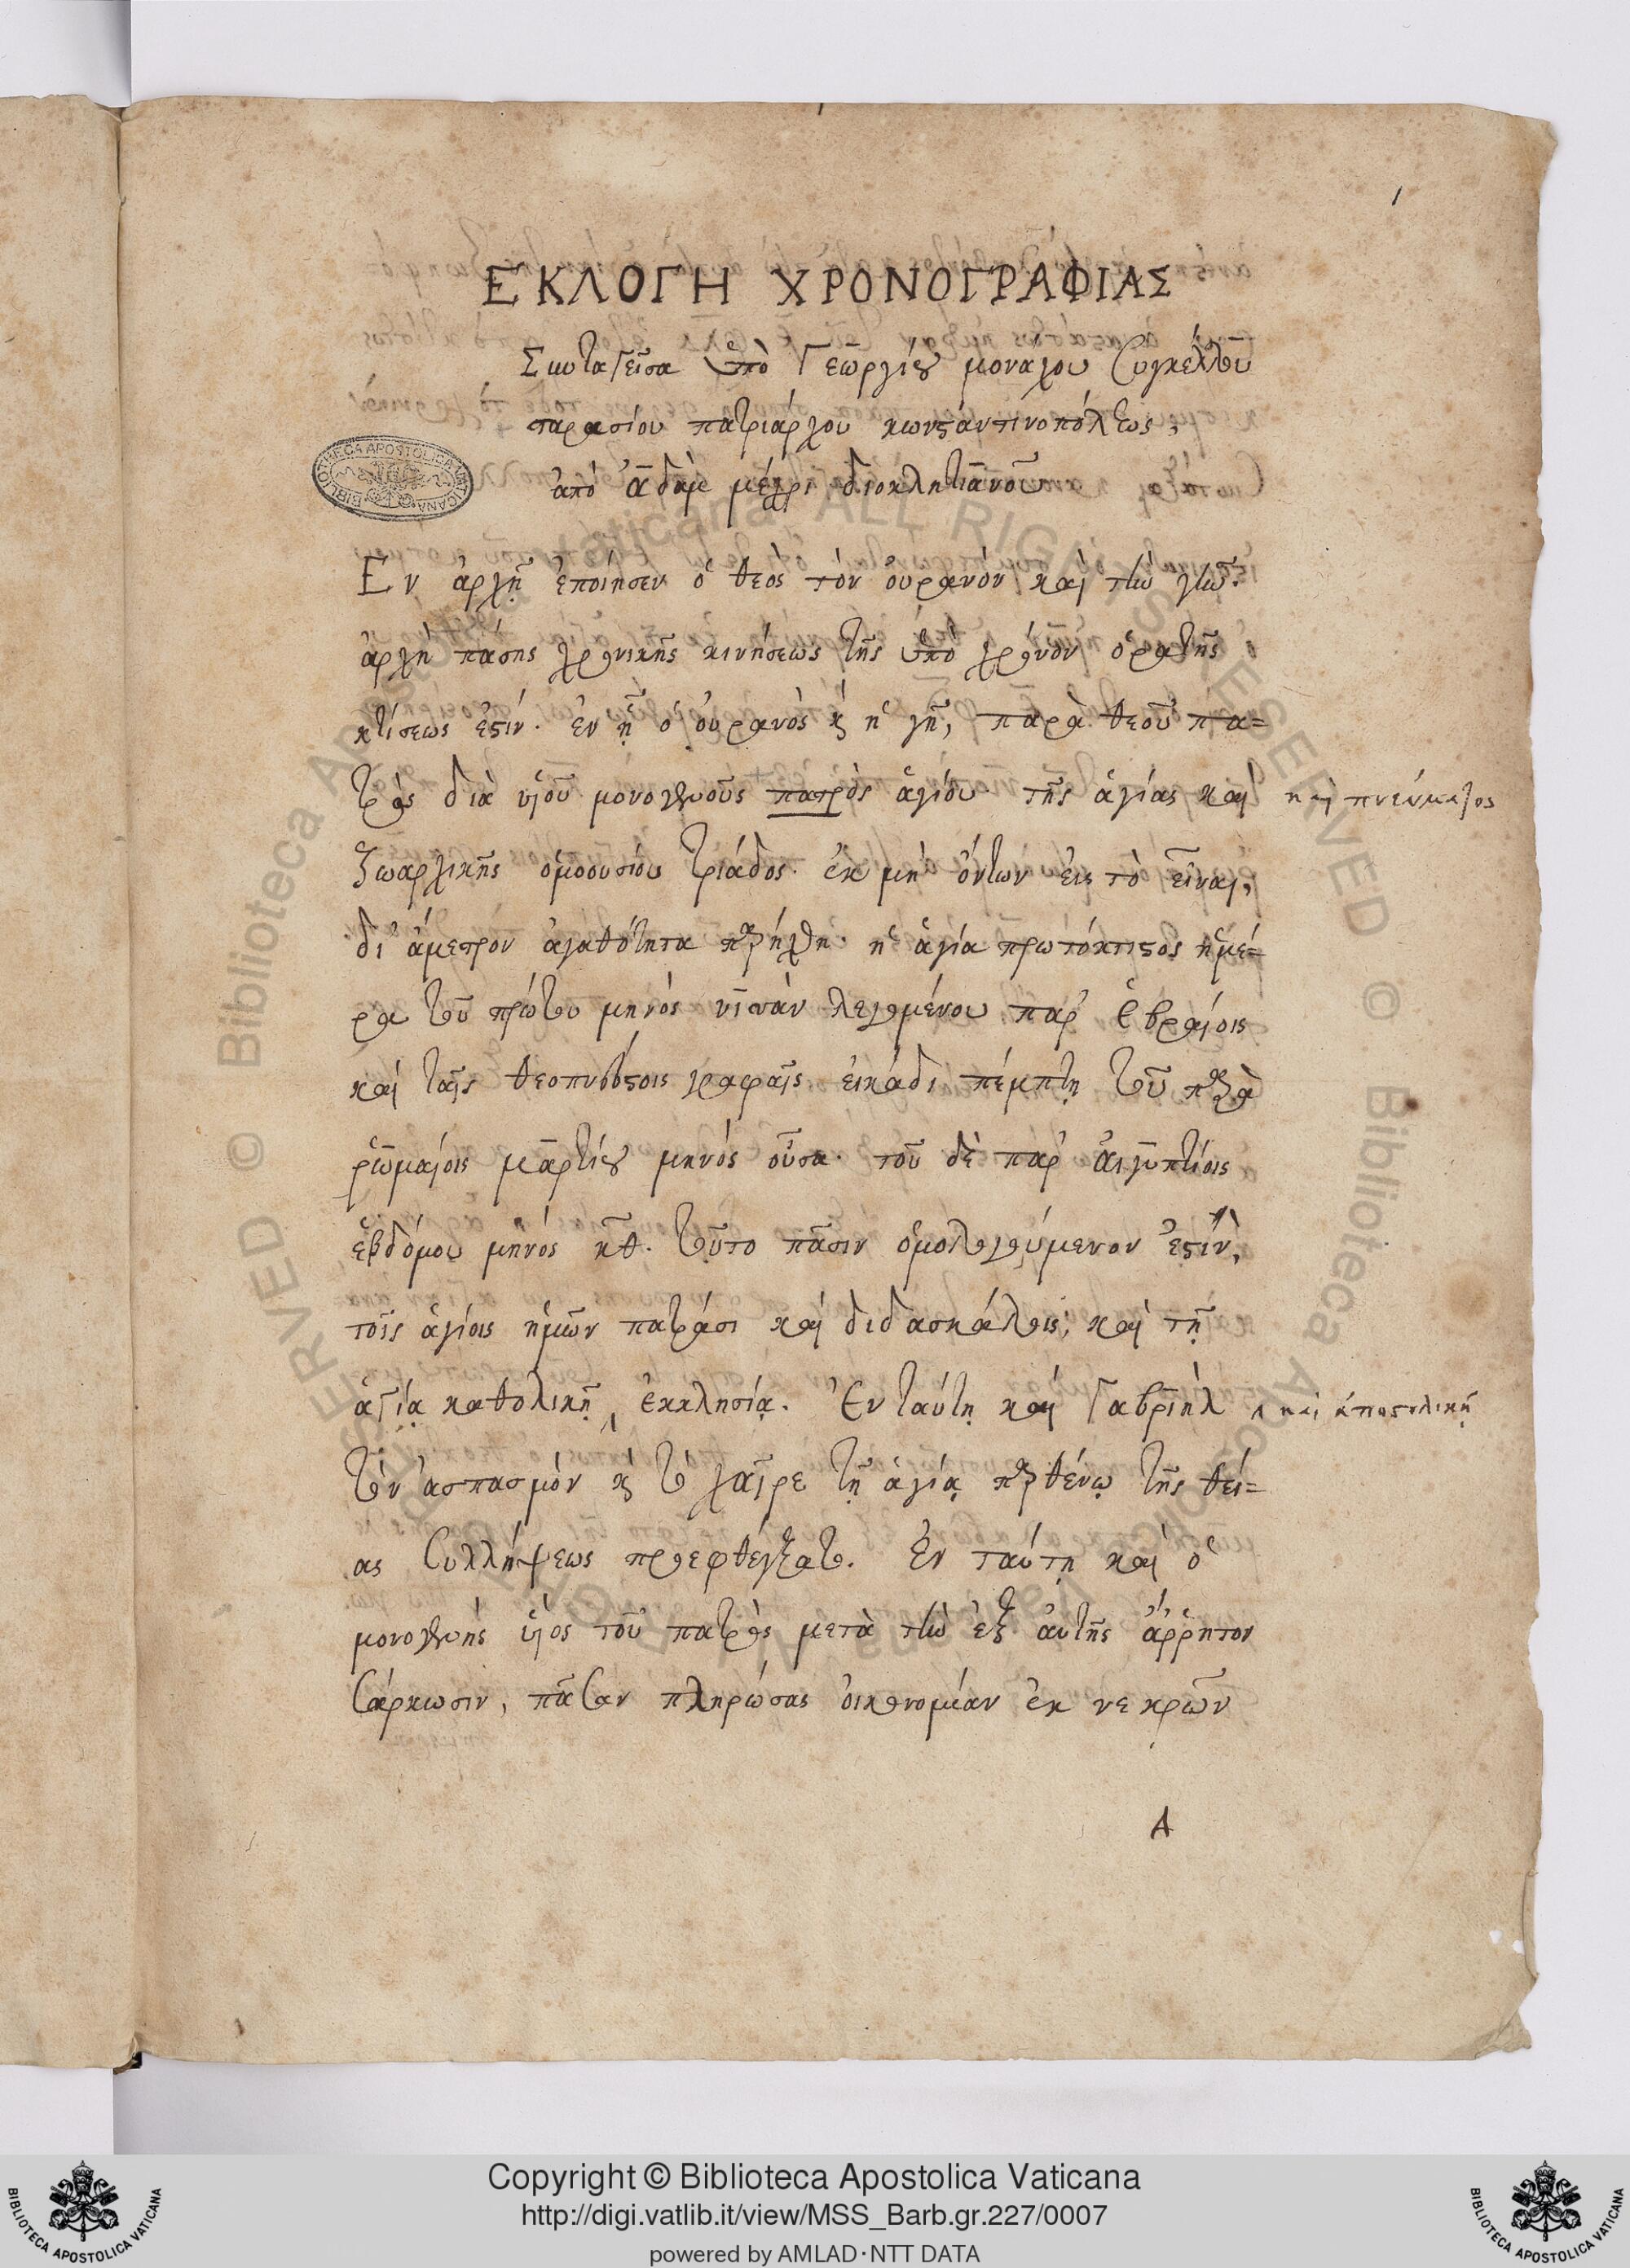 1
ΕΚΛΟΓΗ ΧΡΟΝΟΓΡΑΦΙΑΣ
Συνταγεῖσα ὑπὸ Γεωργίου μοναχου συγκέλλου
ταρασίου πατριάρχου κωνσταντινοπόλεως,
ἀπὸ ἀδὰμ μέχρι διοκλητιανοῦ
Εν ἀρχῇ ἐποίησεν ὁ θεος τὸν ὀυρανὸν καὶ τὴν γῆν.
ἀρχὴ πάσης χρονικῆς κινήσεως τῆς ὑπὸ χρόνον ὁρατῆς
κτίσεως ἐστίν. ἐν ᾗ ὁ ὀυρανὸς κ̀ ἡ γῆ, παρὰ θεοῦ πα=
τρὸς διὰ υἱοῦ μονογενοῦς πατρὸς ἁγίου τῆς ἁγίας καὶ καὶ πνεύματος
ζωαρχικῆς ὁμοουσίου τριάδος. ἐκ μὴ ὄντων εἰς τὸ εἶναι,
δι' ἄμετρον ἀγαθότητα παρήχθη. ἡ ἁγία πρωτόκτιστος ἡμέ=
ρα τοῦ πρώτου μηνὸς νισὰν λεγομένου παρ' ἑβραίοις
καὶ ταῖς θεοπνεύστοις γραφαῖς. εἰκάδι πέμπτῃ τοῦ παρὰ
ῥωμαίοις μαρτίου μηνὸς οὖσα. τοῦ δὲ παρ' ἀιγυπτίοις
ἑβδόμου μηνὸς κθ. τοῦτο πᾶσιν ὁμολογούμενον ἐστίν,
τοῖς ἁγίοις ἡμῶν πατράσι καὶ διδασκάλοις, καὶ τῇ
ἁγίᾳ καθολικῇ ἐκκλησίᾳ. Ἐν ταύτῃ καὶ Γαβριὴλ καὶ ἀποστολικῇ
τὸν ἀσπασμὸν κ̀ τὸ χαῖρε τῇ ἁγίᾳ παρθένῳ τῆς θεί=
ας συλλήψεως προεφθέγξατο. Ἐν ταύτῃ καὶ ὁ
μονογενὴς υἱὸς τοῦ πατρὸς μετὰ τὴν ἐξ ἀυτῆς ἄῤῥητον
σάρκωσιν, πᾶσαν πληρώσας ὀικονομίαν ἐκ νεκρῶν
A
BIBLIOTHECA APOSTOLICA VATICANA
Copyright © Biblioteca Apostolica Vaticana
http://digi.vatlib.it/view/MSS_Barb.gr.227/0007
powered by AMLAD·NTT DATA